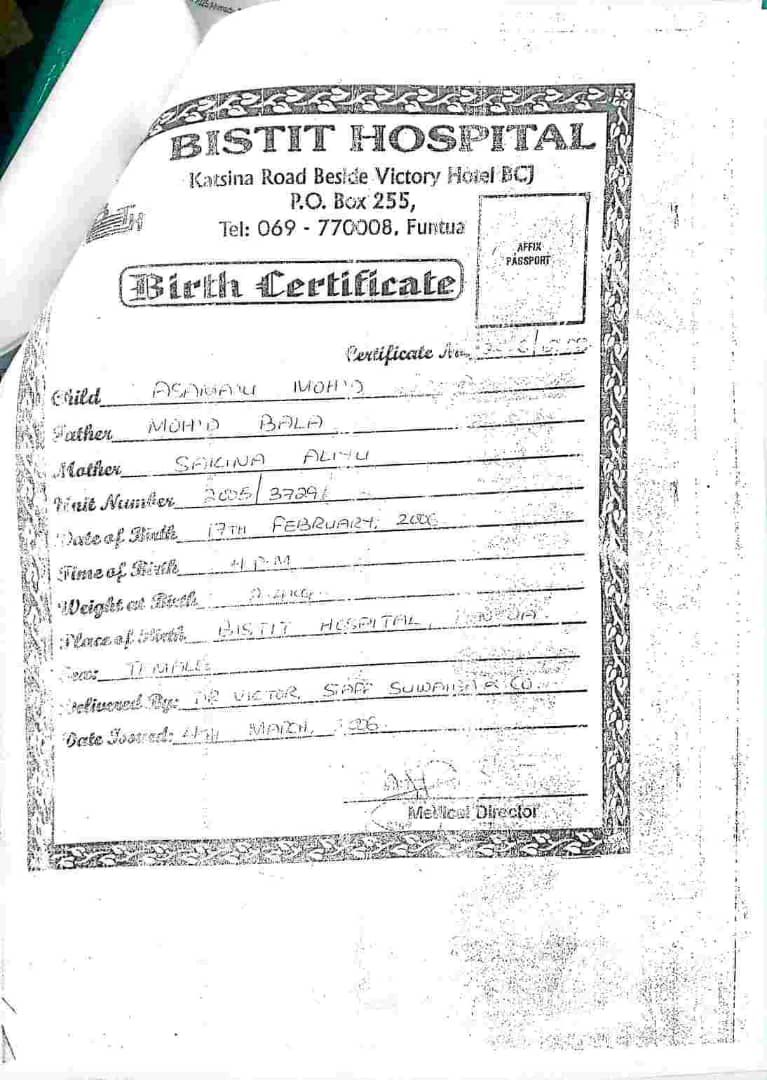 BISTIT HOSPITAL
Katsina Road Beside Victory Hotel BCJ
P.O. Box 255,
Tel: 069 - 770008, Funtua
AFFIX
PASSPORT
Birth Certificate
Certificate No.
Child ASAMA'U MOH'D
Father MOH'D BALA
Mother SAKINA ALIYU
Unit Number 2005/3729
Date of Birth 17TH FEBRUARY, 2006
Time of Birth 4 P.M
Weight at Birth
Place of Birth BISTIT HOSPITAL,
Sex: FEMALE
Delivered By: DR VICTOR, STAFF
Date Issued: MARCH, 2006
Medical Director